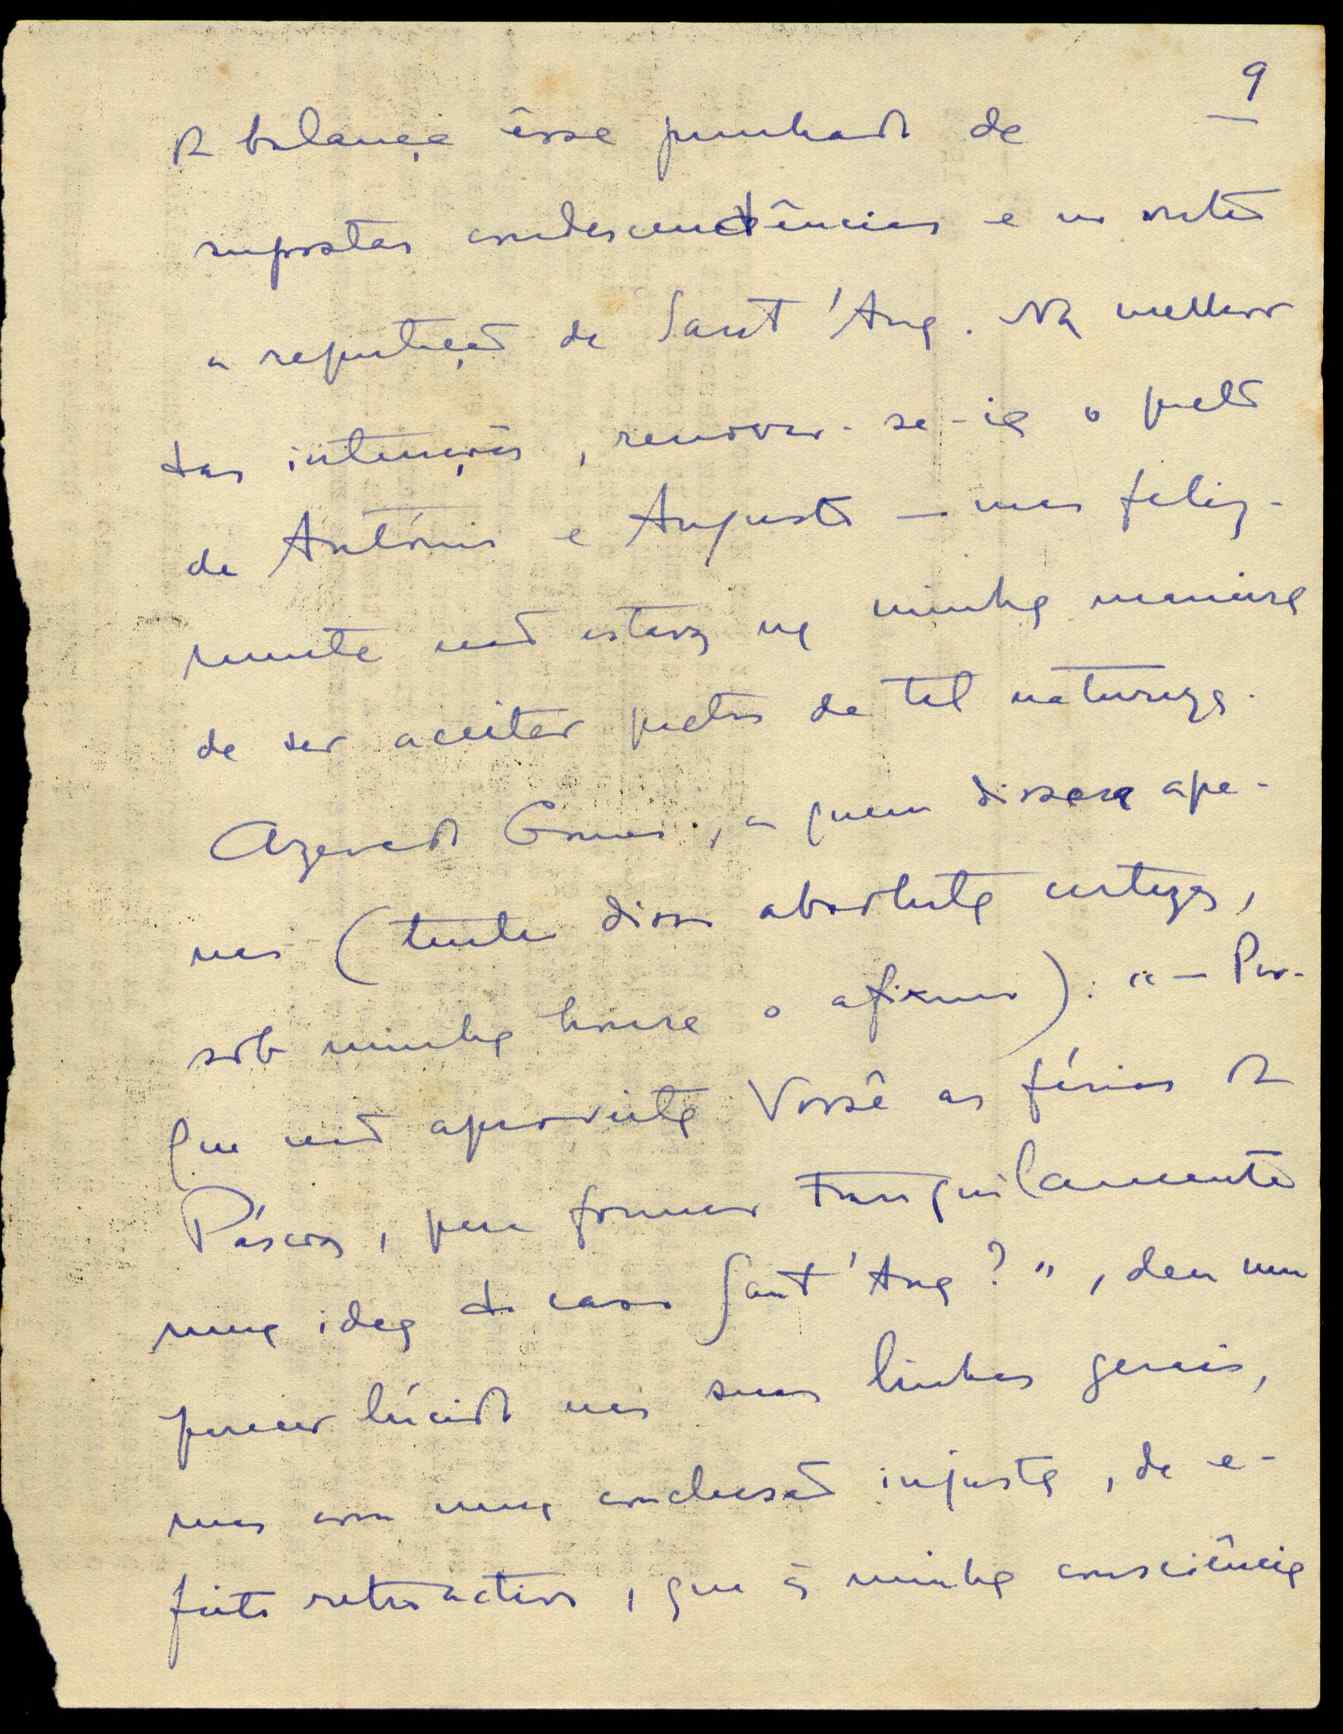 9
da balança êsse punhado de
supostas condescendências e no outro
a reputação de Sant'Ana. Na melhor
das intenções, renovar-se-ia o pacto
de António e Augusto — mas feliz-
mente não estava na minha maneira
de ser aceitar pactos de tal natureza.
Azevedo Gomes, a quem dissera ape-
nas (tenho disso absoluta certeza,
sob minha honra o afirmo): "— Por-
que não aproveita Vossê as férias da
Páscoa, para formar tranquilamente
uma ideia do caso Sant'Ana?", deu um
parecer lúcido nas suas linhas gerais,
mas com uma conclusão injusta, de e-
feito retroactivo, que à minha consciência